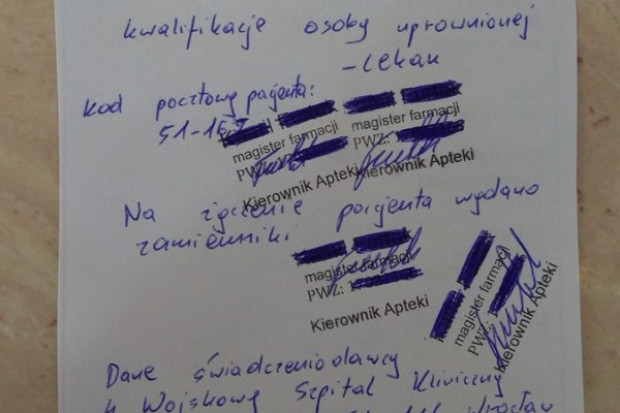 kwalifikacje osoby uprawnionej
- lekarz
Kod pocztowy pacjenta:
51-16
magister farmacji
PWZ:
Kierownik Apteki
magister farmacji
PWZ:
Kierownik Apteki
Na życzenie pacjenta wydano
zamienniki
magister farmacji
PWZ: 1
Kierownik Apteki
magister farmacji
PWZ: 1
Kierownik Apteki
Dane świadczeniodawcy
4 Wojskowy Szpital Kliniczny
Wrocław